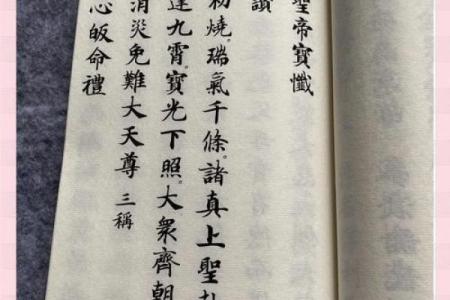 聖帝寶懺
讚
初燒。瑞氣千條。諸真上聖
達九霄。寶光下照。大衆齊朝
消災免難大天尊 三稱
心皈命禮